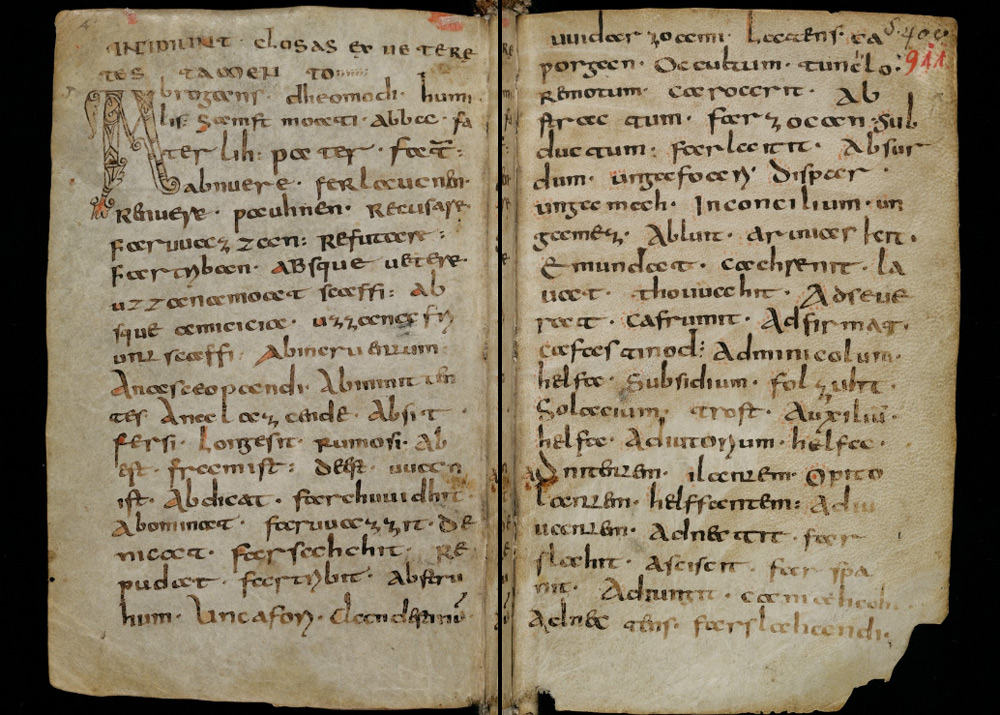 INCIPIUNT · CLOSAS EX UETERE
TES TAMENTO
Abrogans · dheomodi · humi
lis · samft moati · Abba · fa
ter lih : pater · fat̄ :
abnuere · ferlaucnen ·
Renuere · pauhnen · Recusare ·
faruuazzan : Refutare :
fartriban : absque uetere ·
uzzana moat scaffi : ab
sque amicicia · uzzana fri
untscaffi · Abinruentum ·
Anascaopandi · Abinuit tan
tes Aneclazcende · Absit
fersi · Longe sit · rumo si · Ab
est · framist : deest · uuan
ist · Abdicat · farchuuidhit ·
Abominat · faruuazzit · De
nicat · farsahchit · Re
pudat · fartribit · abstru
hum · Uncafori · Clandestinu
uuidarzoomi · Latens · ca
porgan · Occultum · tunclo ·
Remotum · carocrit · Ab
strac tum · farzocan · Sub
ductum · farlaitit · Absur
dum · ungafoari · Dispar ·
ungamah · Inconcilium · un
gamez · Abluit · aruuaskit ·
Emundat · cachrenit · la
uat · thouuahit · Adseue
rat · cafrumit · Adfirmat ·
cafastinod : Adminicolum ·
helfa · Subsidium · folzuht ·
Solacium · trost · Auxiliū ·
helfa · Adiutorium · helfa ·
Adnitentem · ilantem · Opito
lantem · helffantem : Adiu
uantem · Adnectit · far
slahit · Asciscit · far spa
nit · Adiungit · camahchot ·
Adnec tens · farslahandi ·
S. 4
911